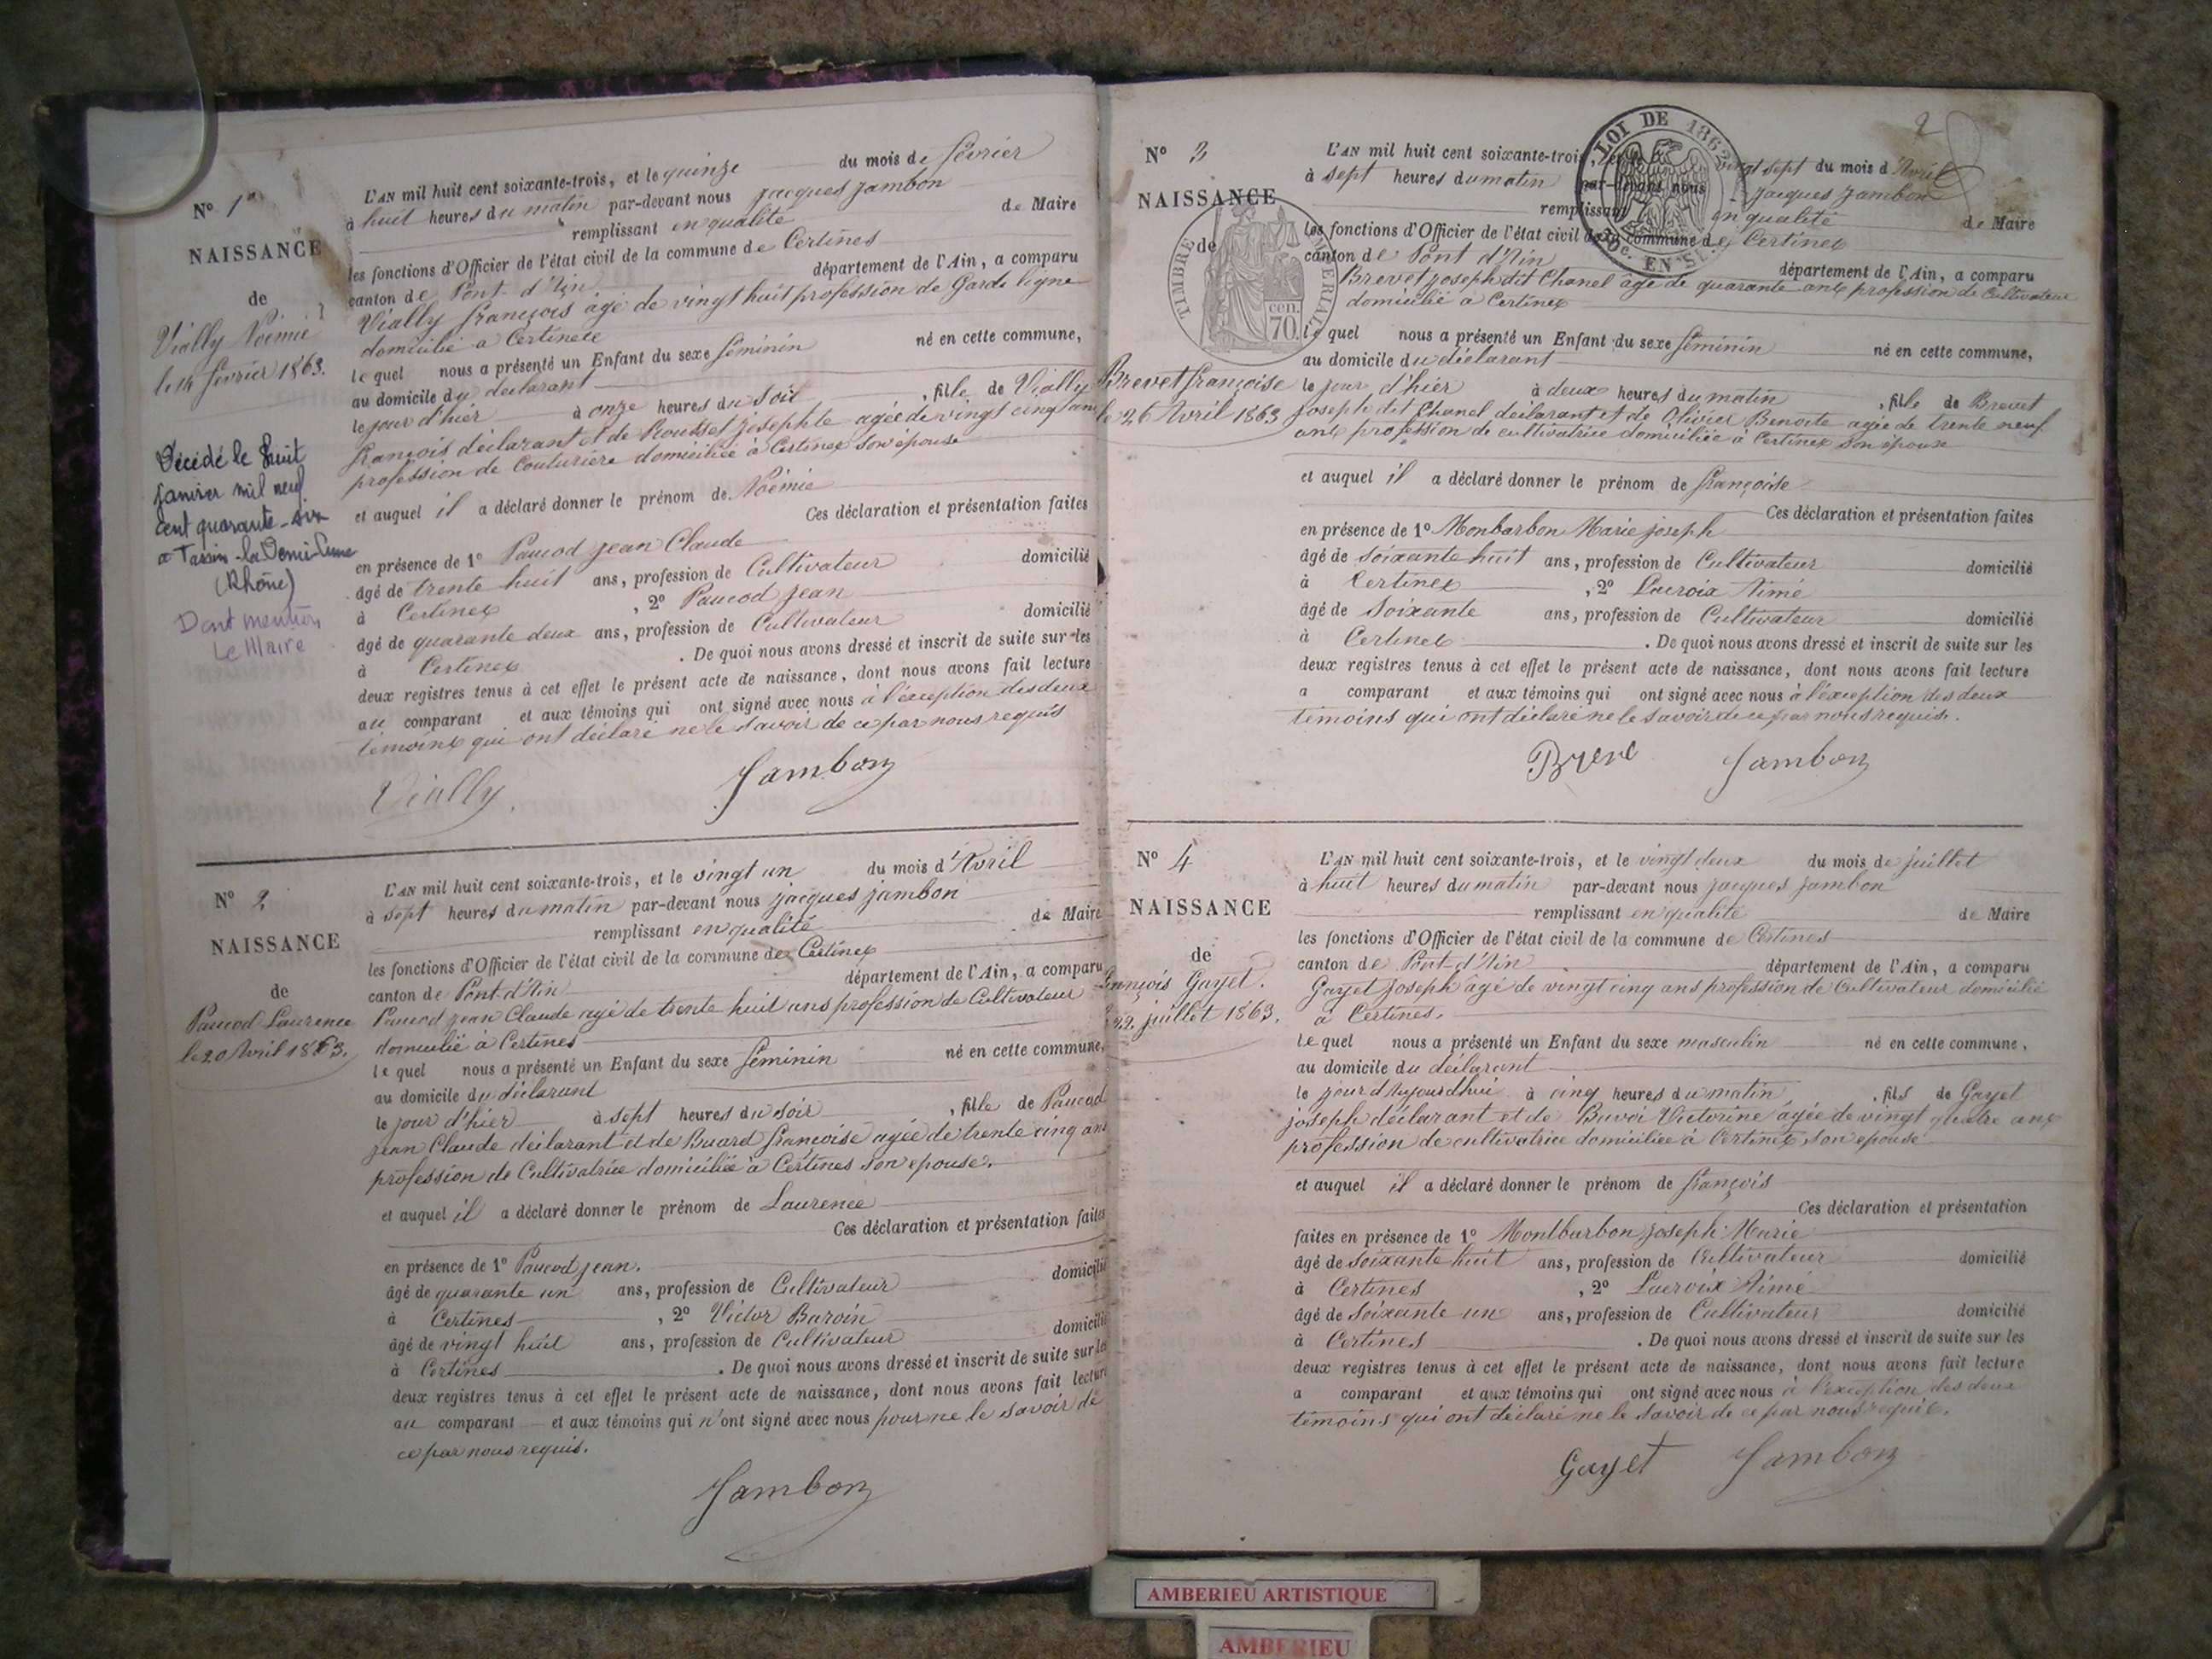 N° 1er
NAISSANCE
de
Vially Noémie
le 14 février 1863.
Décédé le huit
janvier mil neuf
cent quarante-six
a Tassin-la-Demi-Lune
(Rhône)
Dont mention
Le Maire
L'AN mil huit cent soixante-trois, et le quinze du mois de février
à huit heures du matin par-devant nous jacques jambon
remplissant en qualité de Maire
les fonctions d'Officier de l'état civil de la commune de Certines
canton de Pont-d'Ain département de l'Ain, a comparu
Vially françois âgé de vingt huit profession de Garde ligne
domicilié a Certines
le quel nous a présenté un Enfant du sexe féminin né en cette commune,
au domicile du déclarant
le jour d'hier à onze heures du soir , fille de Vially
françois déclarant et de Rousset josephte agée de vingt cinq ans
profession de Couturière domiciliée à Certines son épouse
et auquel il a déclaré donner le prénom de Noémie
Ces déclaration et présentation faites
en présence de 1° Paucod jean Claude
âgé de trente huit ans, profession de Cultivateur domicilié
à Certines , 2° Paucod jean
âgé de quarante deux ans, profession de Cultivateur domicilié
à Certines . De quoi nous avons dressé et inscrit de suite sur les
deux registres tenus à cet effet le présent acte de naissance, dont nous avons fait lecture
au comparant et aux témoins qui ont signé avec nous à l'éxception des deux
témoins qui ont déclaré ne le savoir de ce par nous requis
Vially. Jambon
N° 2
NAISSANCE
de
Paucod Laurence
le 20 Avril 1863.
L'AN mil huit cent soixante-trois, et le vingt un du mois d'Avril
à sept heures du matin par-devant nous jacques jambon
remplissant en qualité de Maire
les fonctions d'Officier de l'état civil de la commune de Certines
canton de Pont-d'Ain département de l'Ain, a comparu
Paucod jean Claude agé de trente huit ans profession de Cultivateur
domicilié à Certines
le quel nous a présenté un Enfant du sexe féminin né en cette commune,
au domicile du déclarant
le jour d'hier à sept heures du soir , fille de Paucod
jean Claude déclarant et de Buard françoise agée de trente cinq ans
profession de Cultivatrice domiciliée à Certines son epouse.
et auquel il a déclaré donner le prénom de Laurence
Ces déclaration et présentation faites
en présence de 1° Paucod jean.
âgé de quarante un ans, profession de Cultivateur domicilié
à Certines , 2° Victor Buroin
âgé de vingt huit ans, profession de Cultivateur domicilié
à Certines . De quoi nous avons dressé et inscrit de suite sur les
deux registres tenus à cet effet le présent acte de naissance, dont nous avons fait lecture
au comparant et aux témoins qui n'ont signé avec nous pour ne le savoir de
ce par nous requis.
Jambon
2
N° 3
NAISSANCE
de
TIMBRE IMPERIAL
70 cen.
LOI DE 1862
2 Dc. EN SUS
Brevet françoise
le 26 Avril 1863
L'AN mil huit cent soixante-trois, et le vingt sept du mois d'Avril
à sept heures du matin par-devant nous jacques jambon
remplissant en qualité de Maire
les fonctions d'Officier de l'état civil de la commune de Certines
canton de Pont d'Ain département de l'Ain, a comparu
Brevet joseph dit Chanel âgé de quarante ans profession de Cultivateur
domicilié à Certines
le quel nous a présenté un Enfant du sexe féminin né en cette commune,
au domicile du déclarant
le jour d'hier à deux heures du matin , fille de Brevet
joseph dit Chanel déclarant et de Olivier Benoite agée de trente neuf
ans profession de cultivatrice domiciliée à Certines son épouse
et auquel il a déclaré donner le prénom de françoise
Ces déclaration et présentation faites
en présence de 1° Monbarbon Marie joseph
âgé de soixante huit ans, profession de Cultivateur domicilié
à Certines , 2° Lacroix Aimé
âgé de Soixante ans, profession de Cultivateur domicilié
à Certines . De quoi nous avons dressé et inscrit de suite sur les
deux registres tenus à cet effet le présent acte de naissance, dont nous avons fait lecture
a comparant et aux témoins qui ont signé avec nous à l'éxception des deux
témoins qui ont déclaré ne le savoir de ce par nous requis.
Jambon
N° 4
NAISSANCE
de
François Gayet.
22 juillet 1863.
L'AN mil huit cent soixante-trois, et le vingt deux du mois de juillet
à huit heures du matin par-devant nous jacques jambon
remplissant en qualité de Maire
les fonctions d'Officier de l'état civil de la commune de Certines
canton de Pont-d'Ain département de l'Ain, a comparu
Gayet joseph âgé de vingt cinq ans profession de Cultivateur domicilié
à Certines.
le quel nous a présenté un Enfant du sexe masculin né en cette commune,
au domicile du déclarant
le jour d'Aujourdhui à cinq heures du matin , fils de Gayet
joseph déclarant et de Victorine âgée de vingt quatre ans
profession de cultivatrice domiciliée à Certines son epouse
et auquel il a déclaré donner le prénom de françois
Ces déclaration et présentation
faites en présence de 1° Montbarbon joseph Marie
âgé de soixante huit ans, profession de Cultivateur domicilié
à Certines , 2° Lacroix Aimé
âgé de Soixante un ans, profession de Cultivateur domicilié
à Certines . De quoi nous avons dressé et inscrit de suite sur les
deux registres tenus à cet effet le présent acte de naissance, dont nous avons fait lecture
a comparant et aux témoins qui ont signé avec nous à l'exception des deux
témoins qui ont déclaré ne le savoir de ce par nous requis.
Gayet Jambon
AMBERIEU ARTISTIQUE
AMBERIEU